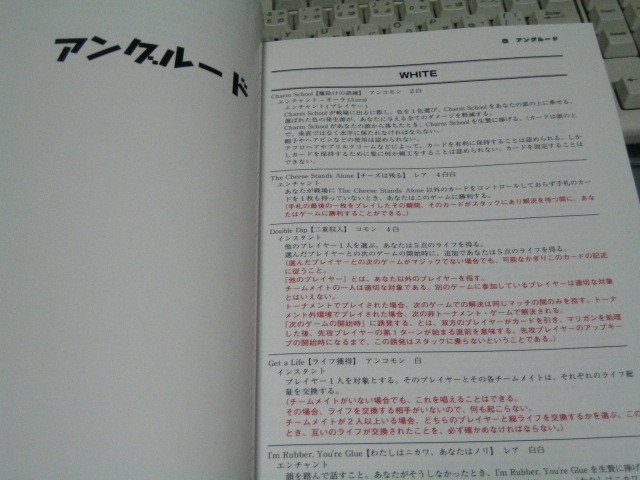 アングルード
白 アングルード
WHITE
Charm School【魔除けの訓練】 アンコモン 2白
エンチャント－オーラ(Aura)
エンチャント(プレイヤー)
Charm Schoolが戦場に出るに際し、色を1色選び、Charm Schoolをあなたの頭の上に乗せる。
選ばれた色の発生源が、あなたに与える全てのダメージを軽減する。
Charm Schoolがあなたの頭から落ちたとき、Charm Schoolを生贄に捧げる。(カードは頭の上
で、垂直ではなく水平に保たれなければならない。)
帽子やヘアピンなどの使用は認められない。
アフロヘアやブリルクリームなどによって、カードを有利に保持することは認められる。しか
しカードを保持するために髪に何か細工をすることは認められない。カードを固定することは
できない。
The Cheese Stands Alone【チーズは残る】 レア 4白白
エンチャント
あなたが戦場にThe Cheese Stands Alone以外のカードをコントロールしておらず手札のカー
ドを1枚も持っていないとき、あなたはこのゲームに勝利する。
(手札の最後の一枚をプレイしたその瞬間、そのカードがスタックにあり解決を待つ間に、あな
たはゲームに勝利することができる。)
Double Dip【二重収入】 コモン 4白
インスタント
他のプレイヤー1人を選ぶ。あなたは5点のライフを得る。
選んだプレイヤーとの次のゲームの開始時に、追加であなたは5点のライフを得る。
(選んだプレイヤーとの次のゲームがマジックでない場合でも、可能なかぎりこのカードの記述
に従うこと。
「他のプレイヤー」とは、あなた以外のプレイヤーを指す。
チームメイトの一人は適切な対象である。別のゲームに参加しているプレイヤーは適切な対象
とはいえない。
トーナメントでプレイされた場合、次のゲームでの解決は同じマッチの間のみを指す。トーナ
メント外環境でプレイされた場合、次の非トーナメント・ゲームで解決される。
「次のゲームの開始時」に誘発する、とは、双方のプレイヤーがカードを引き、マリガンを処理
した後、先攻プレイヤーの第1ターンが始まる直前を意味する。先攻プレイヤーのアップキー
プの開始時になるまで、この誘発はスタックに乗らないということである。)
Get a Life【ライフ獲得】 アンコモン 白
インスタント
プレイヤー1人を対象とする。そのプレイヤーとその各チームメイトは、それぞれのライフ総
量を交換する。
(チームメイトがいない場合でも、これを唱えることはできる。
その場合、ライフを交換する相手がいないので、何も起こらない。
チームメイトが2人以上いる場合、どちらのプレイヤーと総ライフを交換するかを選ぶ。この
とき、互いのライフが交換されたことを、必ず確かめなければならない。)
I'm Rubber, You're Glue【わたしはニカワ、あなたはノリ】 レア 白白
エンチャント
韻を踏んで話すこと。あなたがそうしなかったとき、I'm Rubber, You're Glueを生贄に捧げ